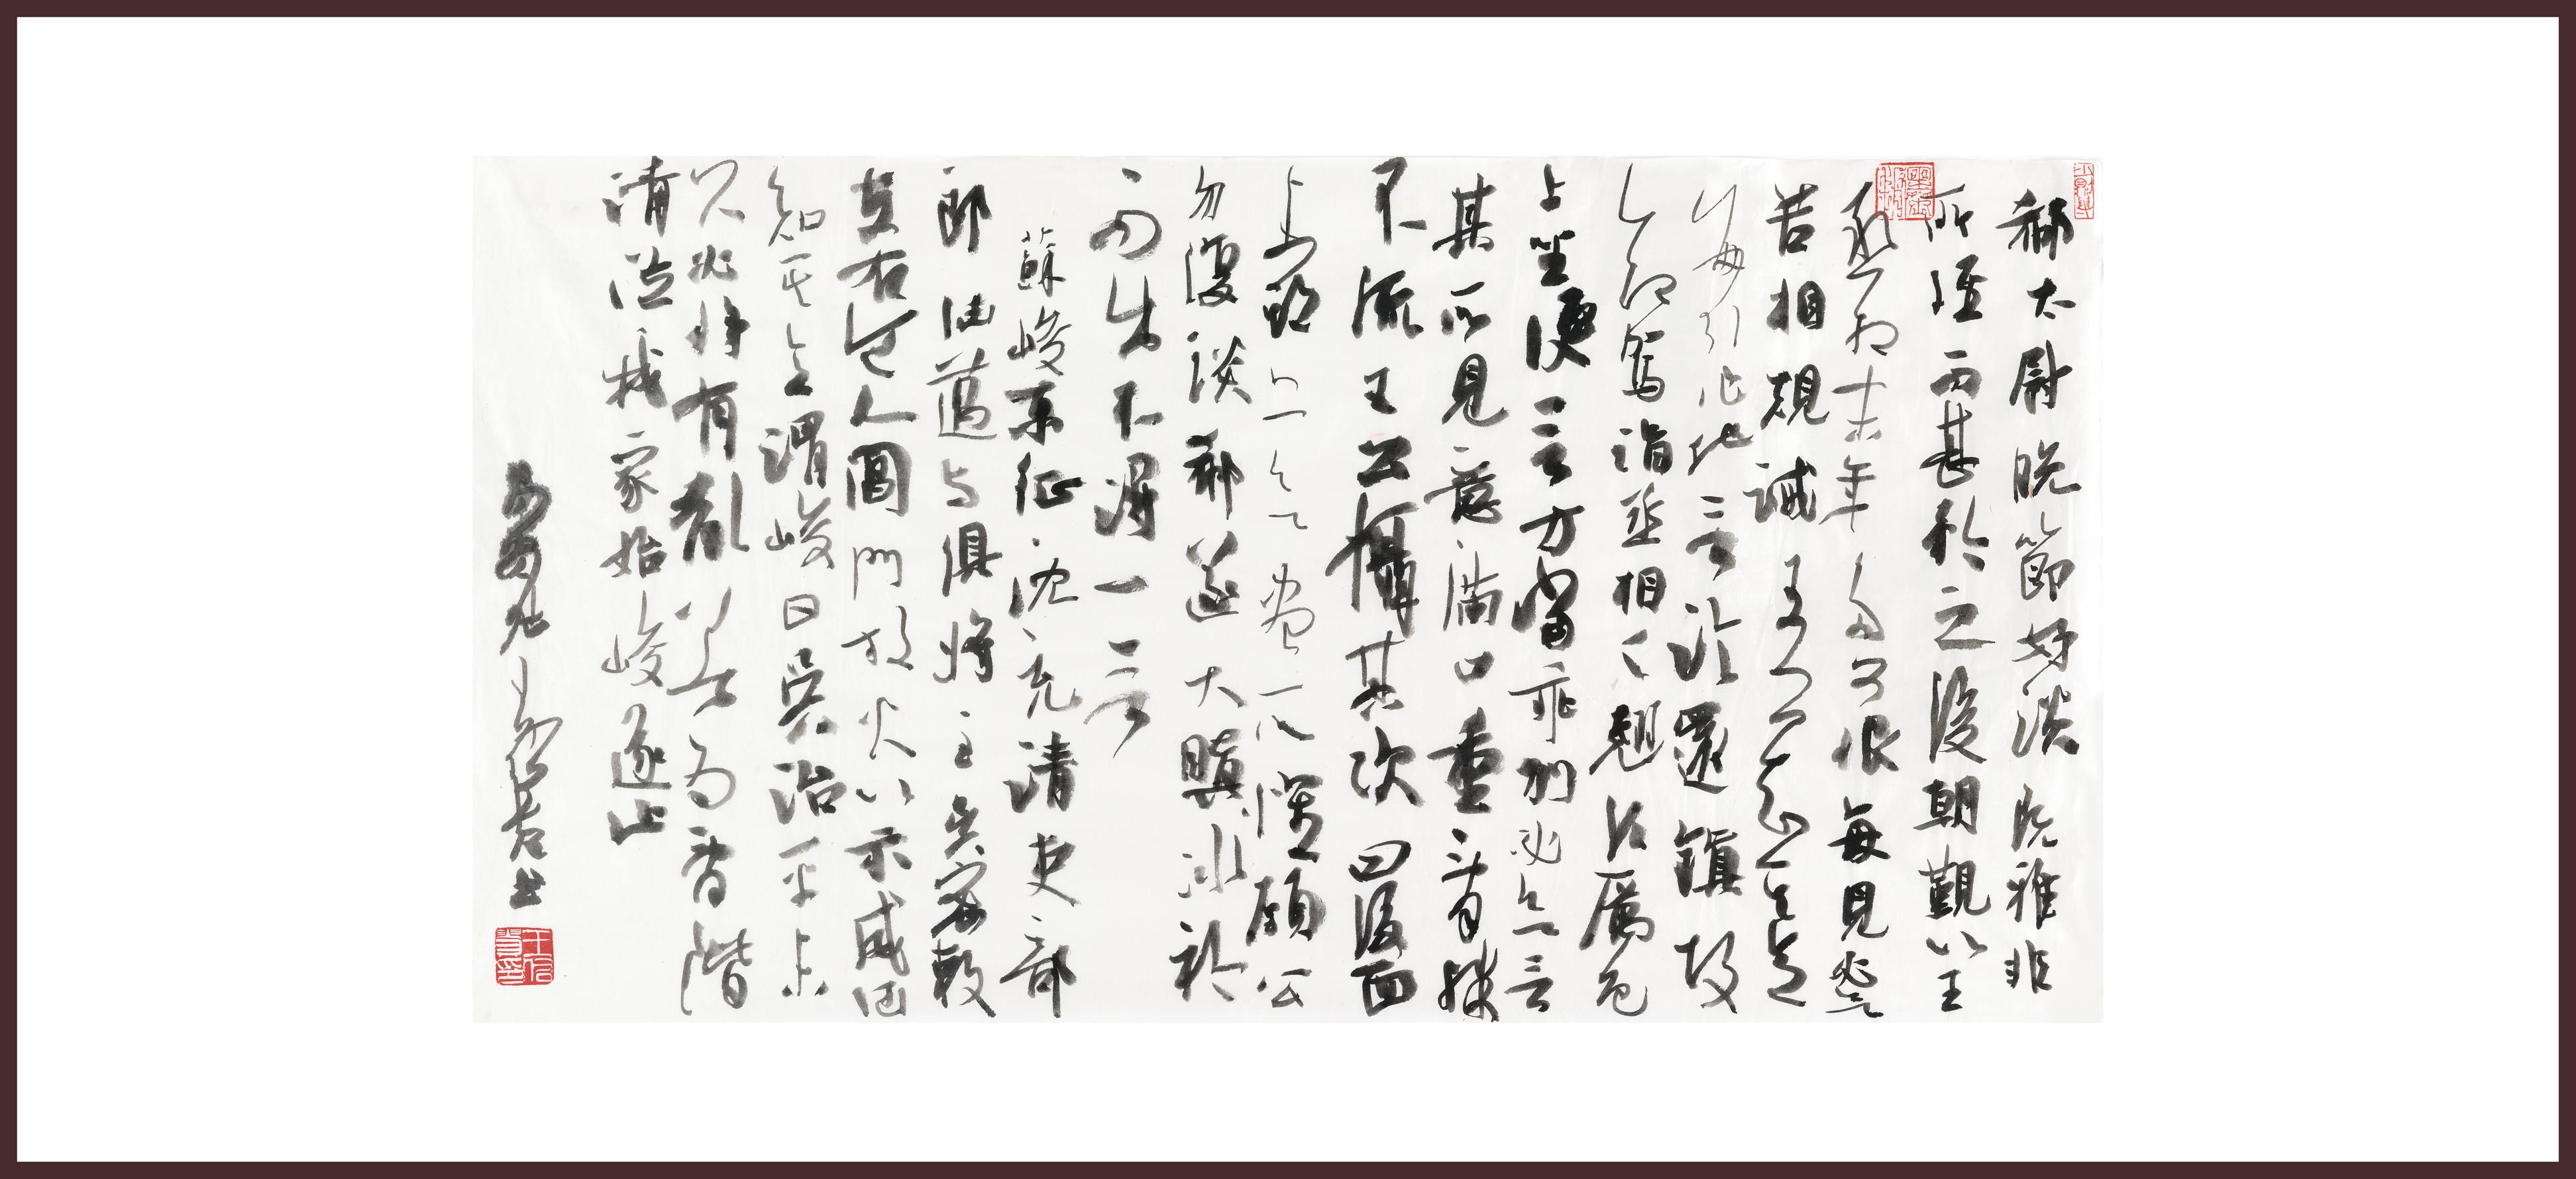 郗太尉晚節好談既雅非
所經而甚矜之後朝覲以王
丞相末年多可恨每見必欲
苦相規誡王公知其意
每引作他言臨還鎮故
命駕詣丞相〻翹須厲色
上坐便言方當乖別必欲言
其所見意滿口重辭殊
不流王公攝其次曰後面
未期亦欲盡所懷願公
勿復談郗遂大瞋冰衿
而出不得一言
蘇峻東征沈充請吏部
郎陸邁与俱將至吳密敕
左右令入閶門放火以示威陸
知其意謂峻曰吳治平未
久必將有亂若為亂階
請從我家始峻遂止